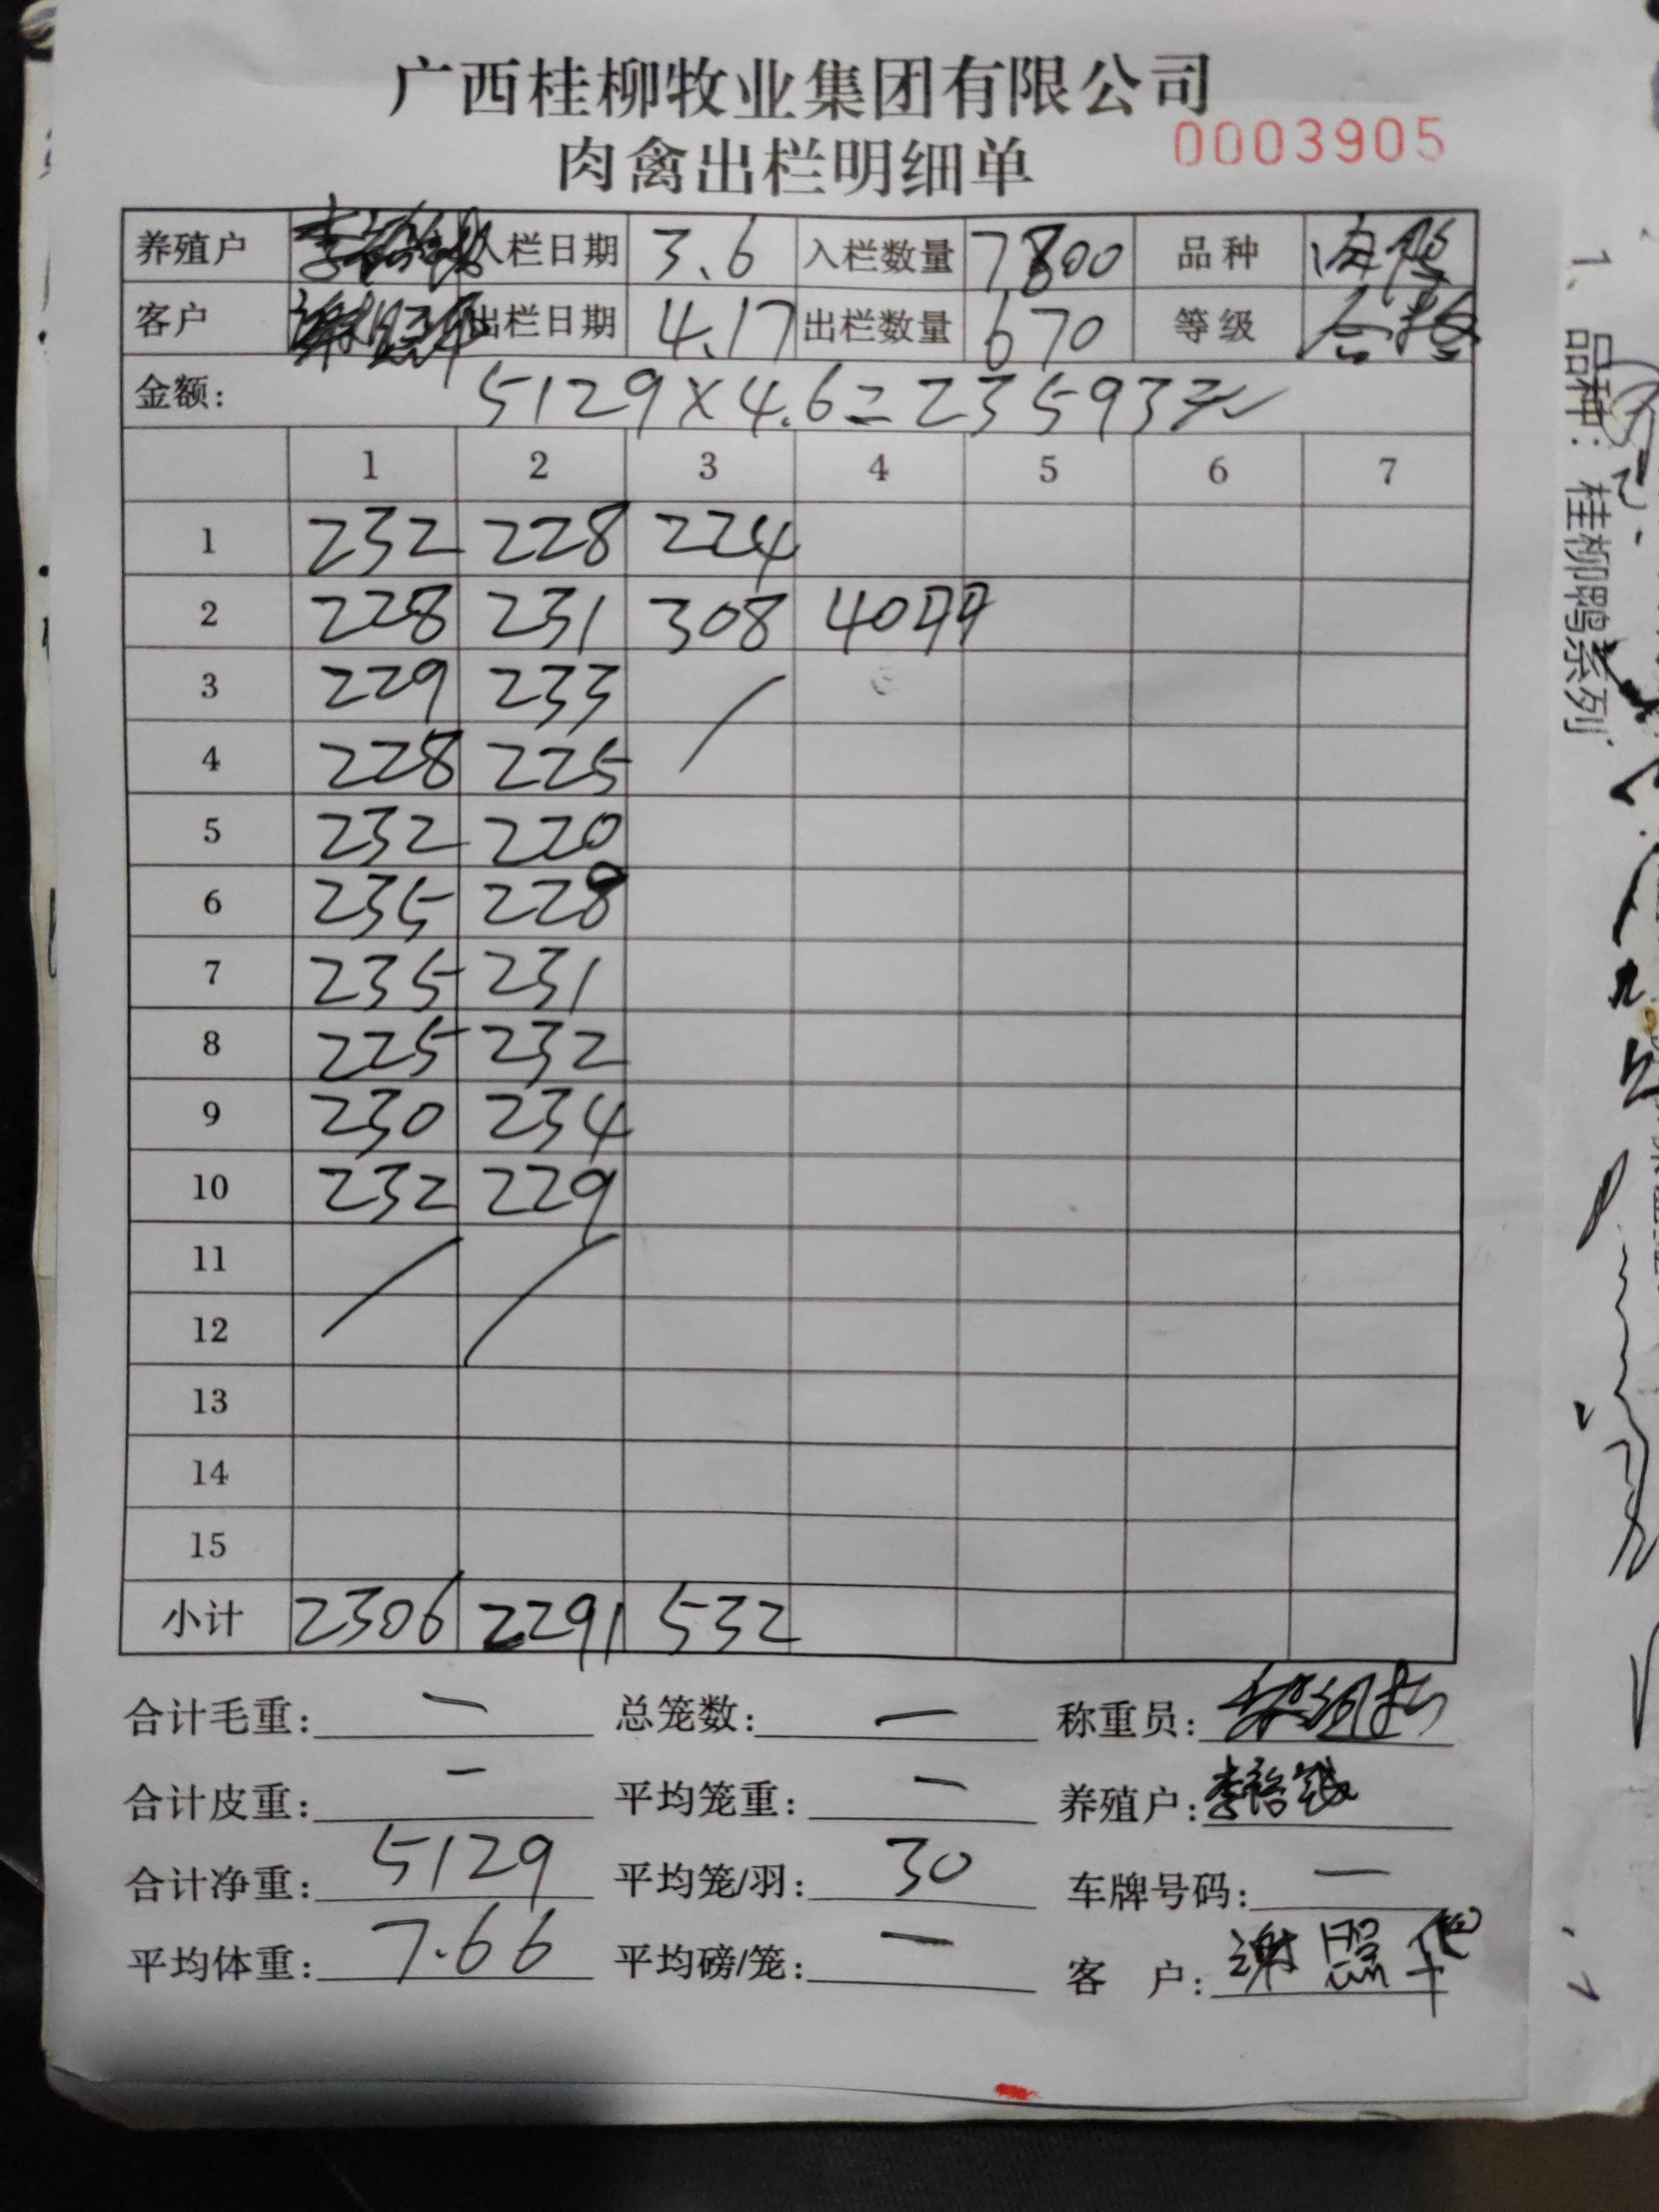 广西桂柳牧业集团有限公司
肉禽出栏明细单 0003905
养殖户 入栏日期 3.6 入栏数量 7800 品种
客户 谢照华 出栏日期 4.17 出栏数量 670 等级 合格
金额: 5129×4.6=23593元
1 2 3 4 5 6 7
1 232 228 224
2 228 231 308 40
3 229 233 /
4 228 225
5 232 220
6 235 228
7 235 231
8 225 232
9 230 234
10 232 229
11 / /
12
13
14
15
小计 2306 2291 532
合计毛重: — 总笼数: — 称重员:
合计皮重: — 平均笼重: — 养殖户: 李裕
合计净重: 5129 平均笼/羽: 30 车牌号码: —
平均体重: 7.66 平均磅/笼: — 客 户: 谢照华
1、品种: 桂柳鸭系列